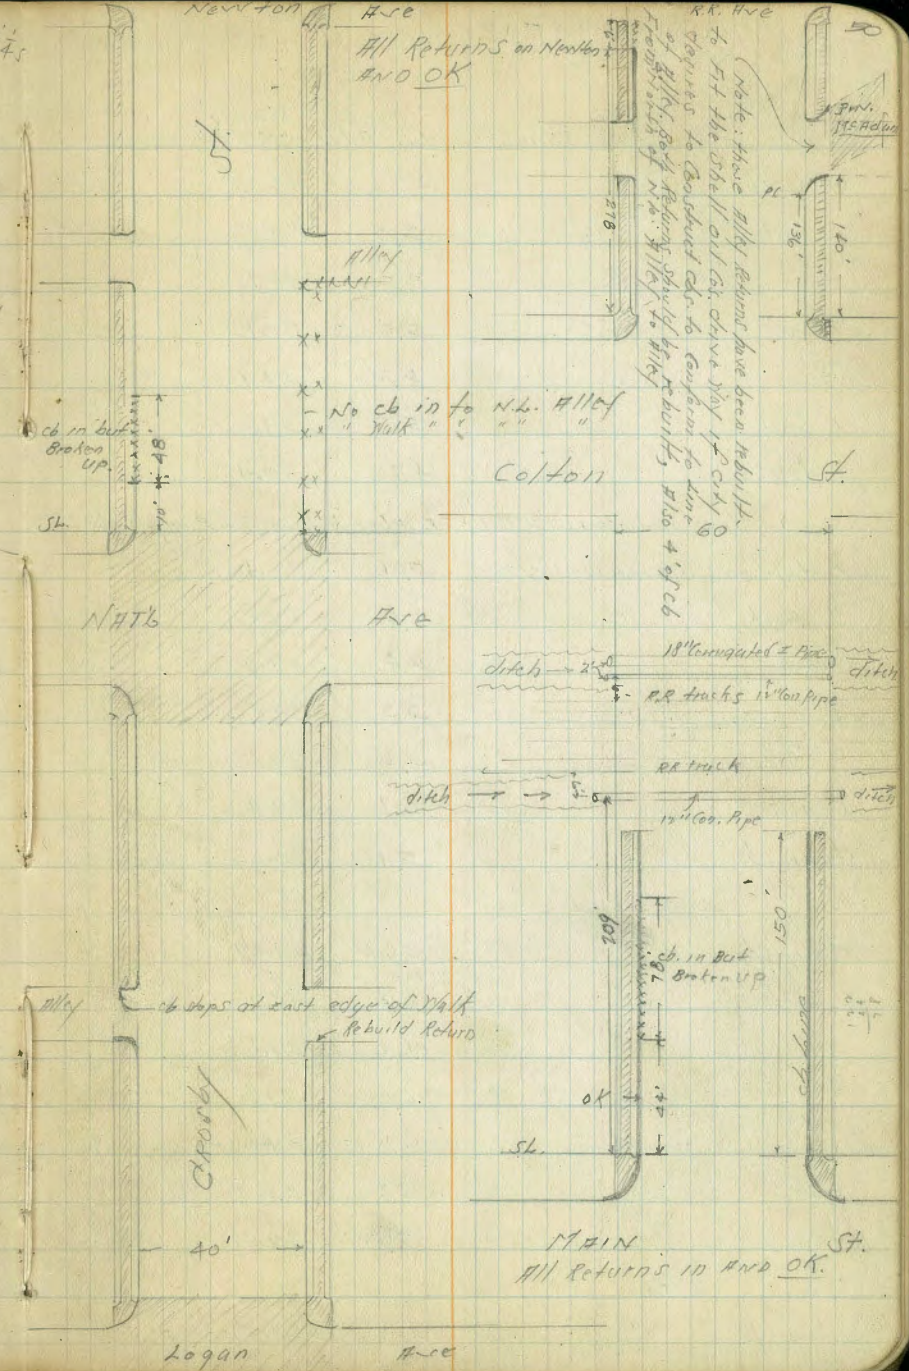 Newton Ave
All Returns on Newton
AND OK
St
Alley
No cb in to N.L. Alley
" Walk " " " " "
cb in but
Broken
up.
48
10'
SL.
NAT'L Ave
Alley
cb stops at east edge of Walk
Rebuild Return
Crosby
40'
Logan Ave
R.R. Ave
50
(Note: those Alley Returns have been rebuilt
to Fit the Shell oil Co's. drive way if city
desires to Construct cbs. to Conform to Line
of Alley, Both Returns should be rebuilt, Also 4' of cb
From North of N.L. Alley to Alley
278
PC
136'
140'
Colton St.
60
ditch
2'
18" Corrugated I Pipe
ditch
RR tracks 12" Con Pipe
RR track
ditch
6'
12" Con. Pipe
ditch
209'
cb. in But
Broken up
78
150'
OK
22'
SL.
MAIN St.
All Returns in AND OK.